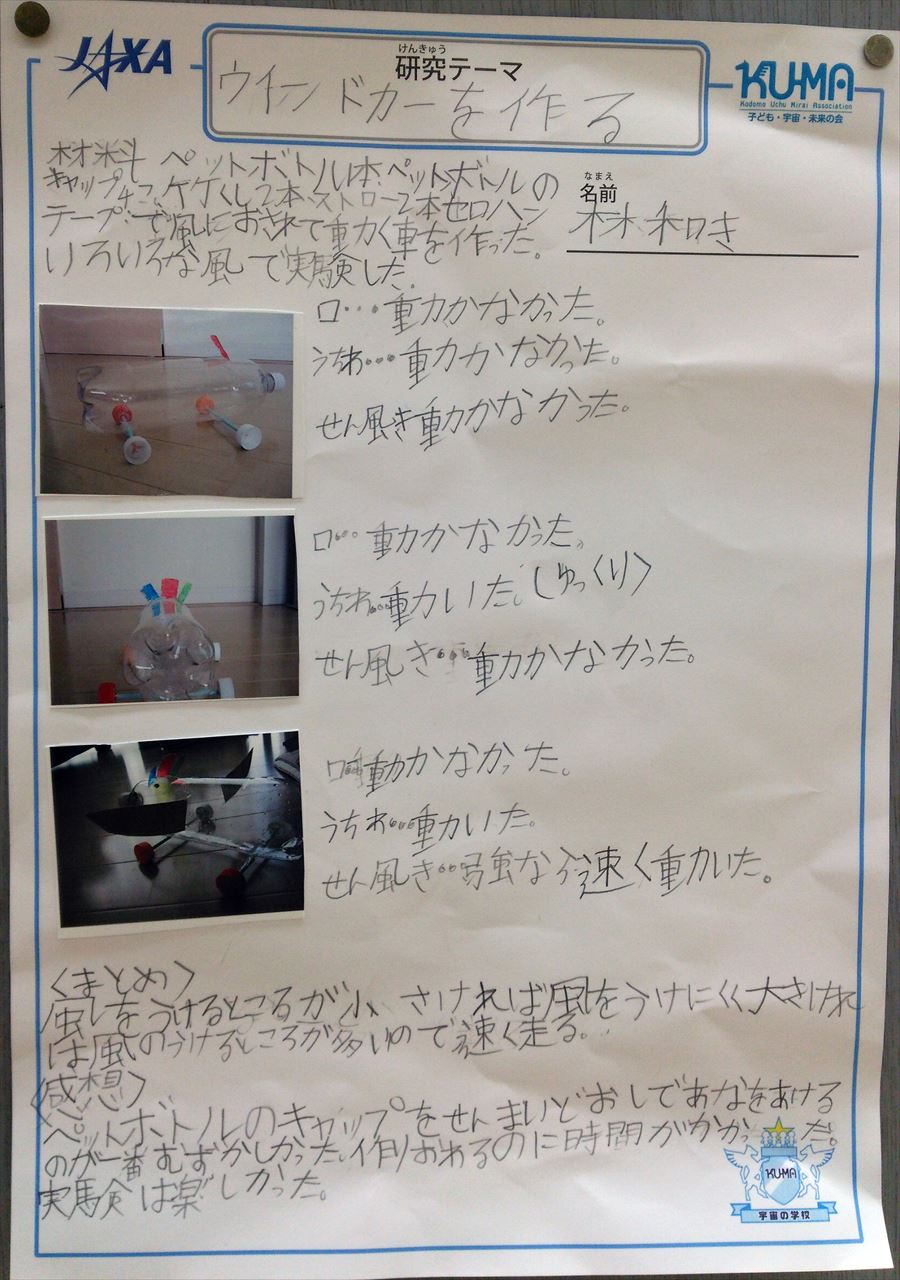 JAXA
けんきゅう
研究テーマ
ウインドカーを作る
KU-MA
Kodomo Uchu Mirai Association
子ども・宇宙・未来の会
材料 ペットボトル1本ペットボトルの
キャップ4こ、竹ぐし2本、ストロー2本セロハン
テープ…で風におされて動く車を作った。
いろいろな風で実験した。
なまえ
名前
林 和き
口…動かなかった。
うちわ…動かなかった。
せん風き動かなかった。
口…動かなかった。
うちわ…動いた。(ゆっくり)
せん風き…動かなかった。
口…動かなかった。
うちわ…動いた。
せん風き…強なら速く動いた。
〈まとめ〉
風をうけるところが小さければ風をうけにくく大きけれ
ば風のうけるところが多いので速く走る。
〈感想〉
ペットボトルのキャップをせんまいどおしであなをあける
のが一番むずかしかった。作りおわるのに時間がかかった。
実験は楽しかった。
KU-MA
宇宙の学校